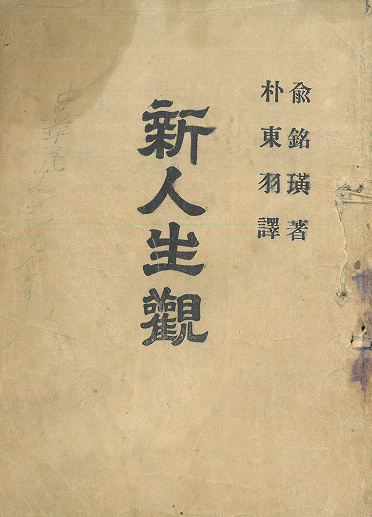 兪銘璜著
朴東羽譯
新人生觀